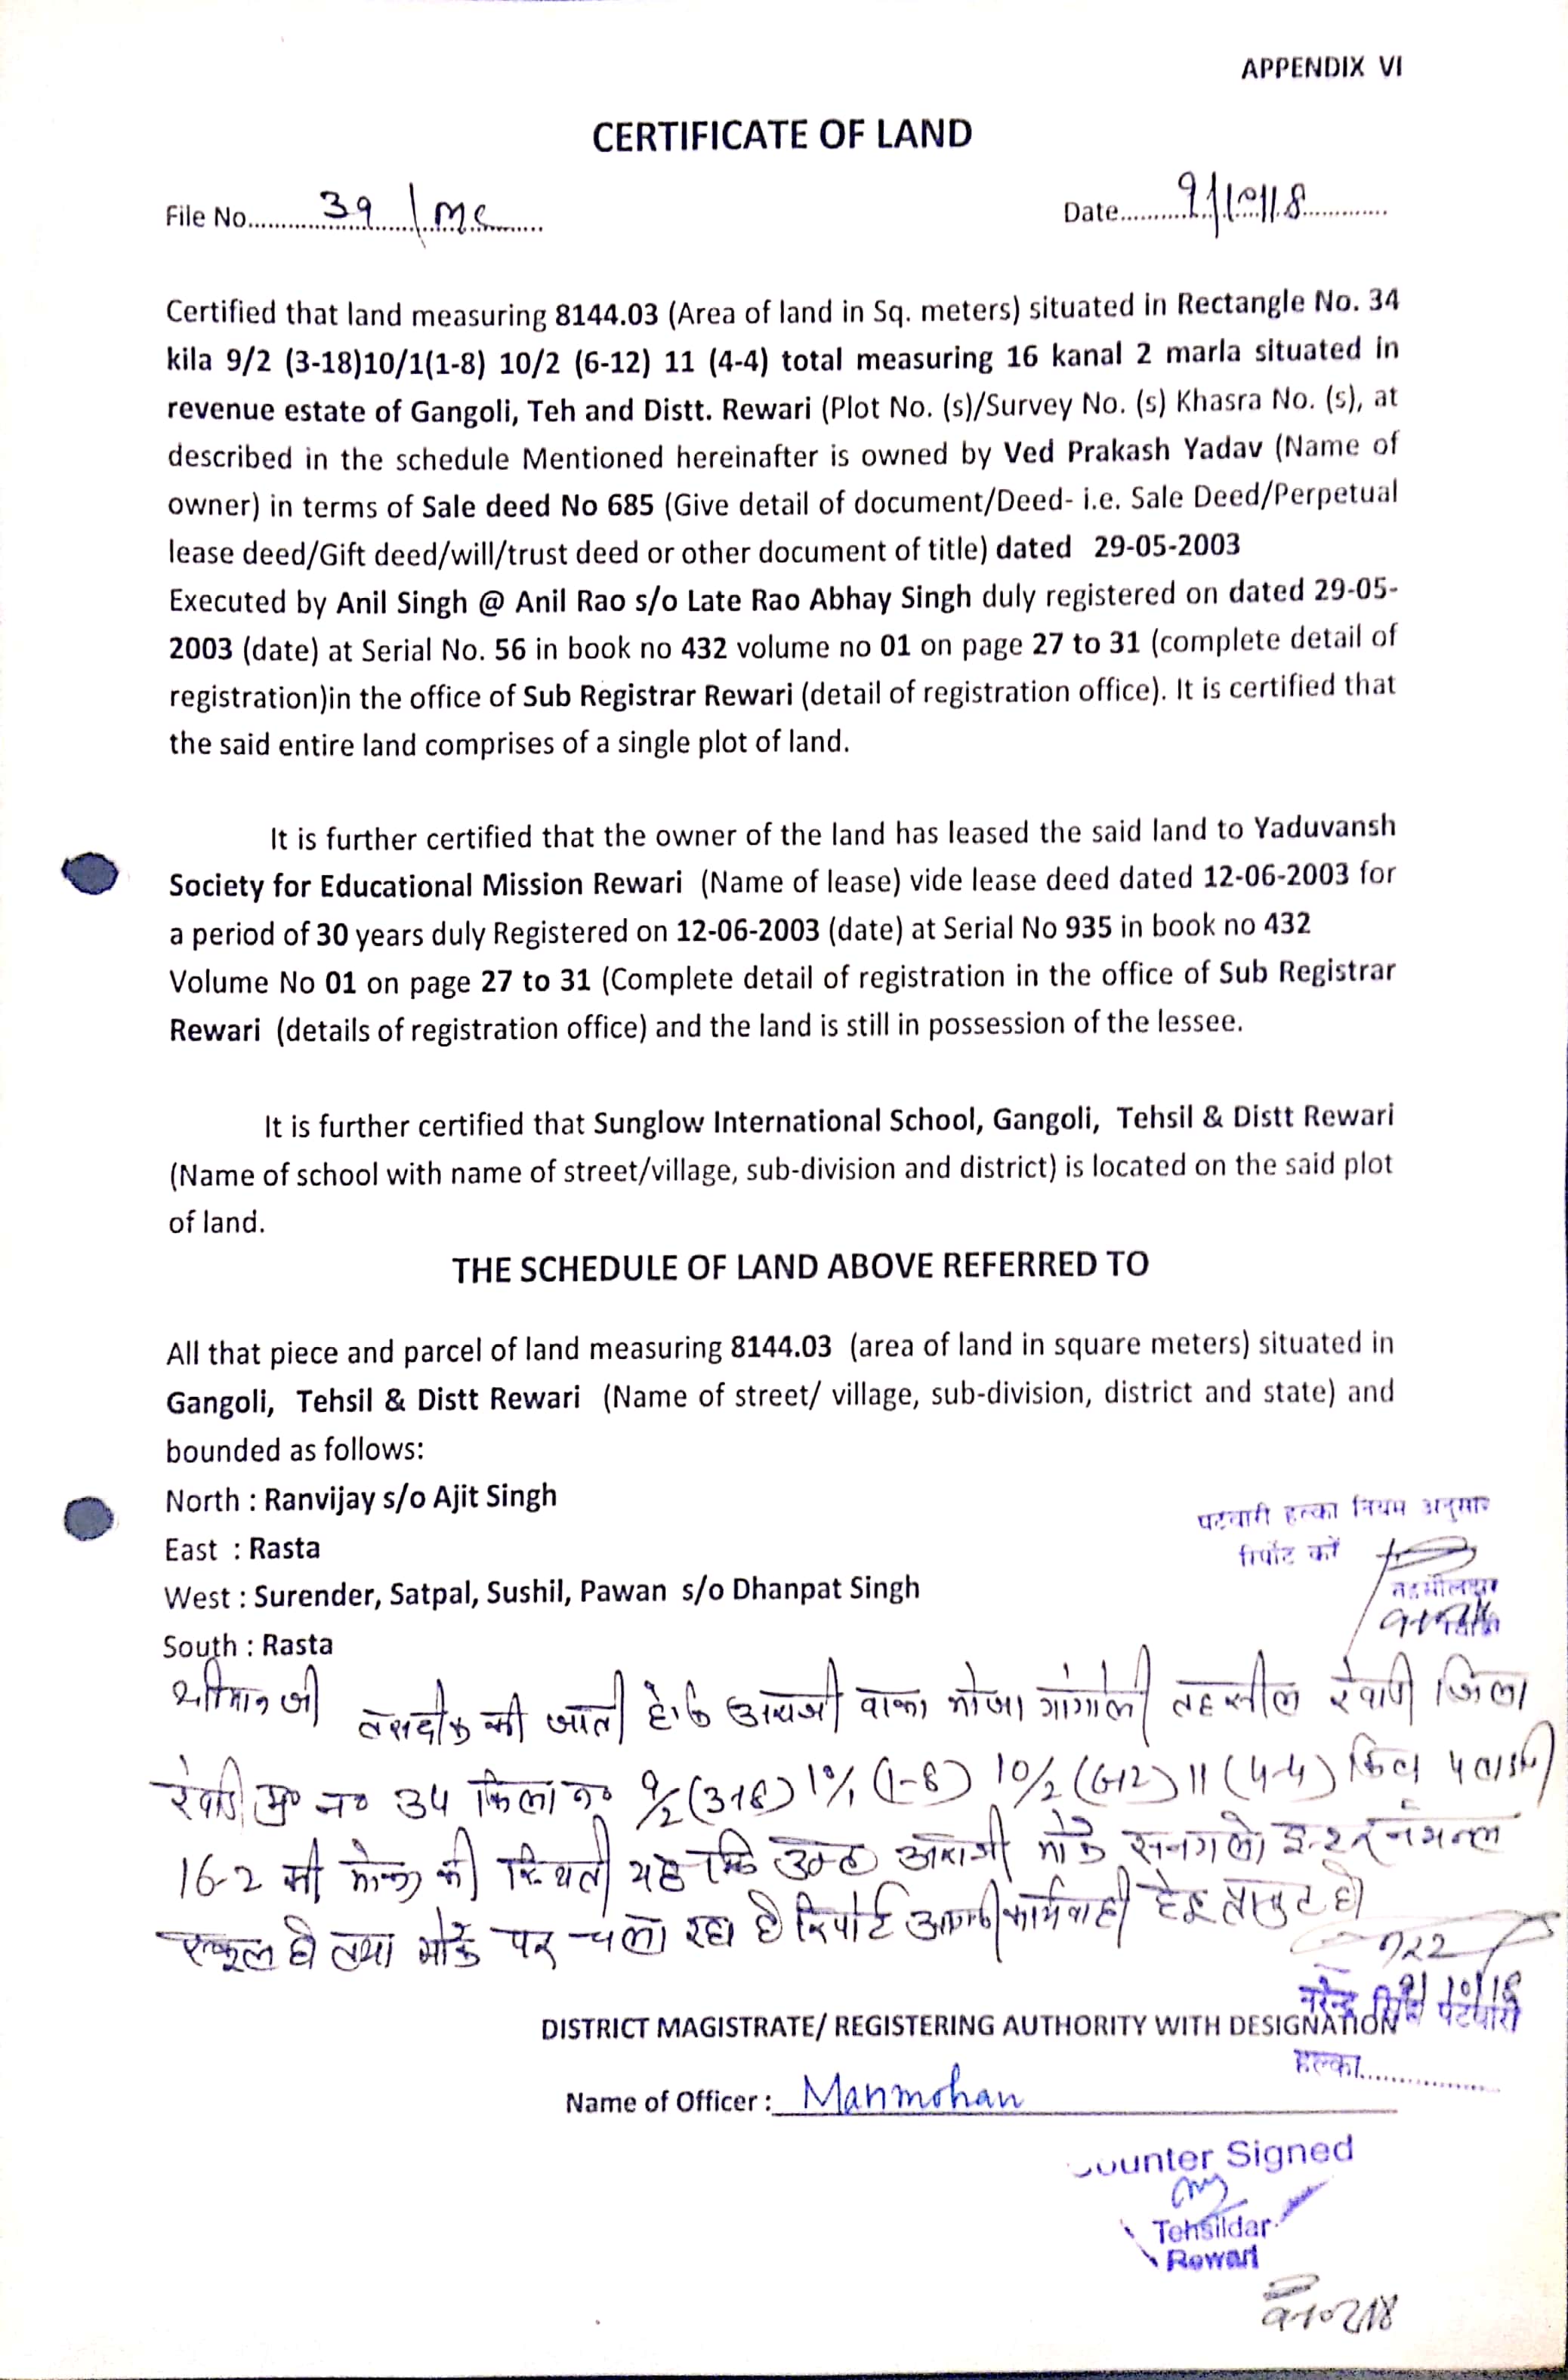 APPENDIX VI
CERTIFICATE OF LAND
File No. 39 / MC
Date 9/10/18
Certified that land measuring 8144.03 (Area of land in Sq. meters) situated in Rectangle No. 34
kila 9/2 (3-18)10/1(1-8) 10/2 (6-12) 11 (4-4) total measuring 16 kanal 2 marla situated in
revenue estate of Gangoli, Teh and Distt. Rewari (Plot No. (s)/Survey No. (s) Khasra No. (s), at
described in the schedule Mentioned hereinafter is owned by Ved Prakash Yadav (Name of
owner) in terms of Sale deed No 685 (Give detail of document/Deed- i.e. Sale Deed/Perpetual
lease deed/Gift deed/will/trust deed or other document of title) dated 29-05-2003
Executed by Anil Singh @ Anil Rao s/o Late Rao Abhay Singh duly registered on dated 29-05-
2003 (date) at Serial No. 56 in book no 432 volume no 01 on page 27 to 31 (complete detail of
registration)in the office of Sub Registrar Rewari (detail of registration office). It is certified that
the said entire land comprises of a single plot of land.
It is further certified that the owner of the land has leased the said land to Yaduvansh
Society for Educational Mission Rewari (Name of lease) vide lease deed dated 12-06-2003 for
a period of 30 years duly Registered on 12-06-2003 (date) at Serial No 935 in book no 432
Volume No 01 on page 27 to 31 (Complete detail of registration in the office of Sub Registrar
Rewari (details of registration office) and the land is still in possession of the lessee.
It is further certified that Sunglow International School, Gangoli, Tehsil & Distt Rewari
(Name of school with name of street/village, sub-division and district) is located on the said plot
of land.
THE SCHEDULE OF LAND ABOVE REFERRED TO
All that piece and parcel of land measuring 8144.03 (area of land in square meters) situated in
Gangoli, Tehsil & Distt Rewari (Name of street/ village, sub-division, district and state) and
bounded as follows:
North : Ranvijay s/o Ajit Singh
East : Rasta
West : Surender, Satpal, Sushil, Pawan s/o Dhanpat Singh
South : Rasta
पटवारी हल्का नियम अनुसार
रिपोंट करें
तहसीलदार
श्रीमान जी तसदीक की जाती है कि अराजी वाका मोजा गांगोली तहसील रेवाड़ी जिला
रेवाड़ी मु० न० 34 किला न० 9/2 (3-18) 10/1 (1-8) 10/2 (6-12) 11 (4-4)
16-2 की मोका की स्थिती यह कि उक्त अराजी मोके सनगलो इन्टरनेशनल
स्कूल है तथा मोके पर चला रहा है रिपोर्ट आगामी कार्यवाही हेतु प्रस्तुत है।
9/10/18
नरेन्द्र सिंह पटवारी
हल्का
DISTRICT MAGISTRATE/ REGISTERING AUTHORITY WITH DESIGNATION
Name of Officer : Manmohan
Counter Signed
Tehsildar
Rewari